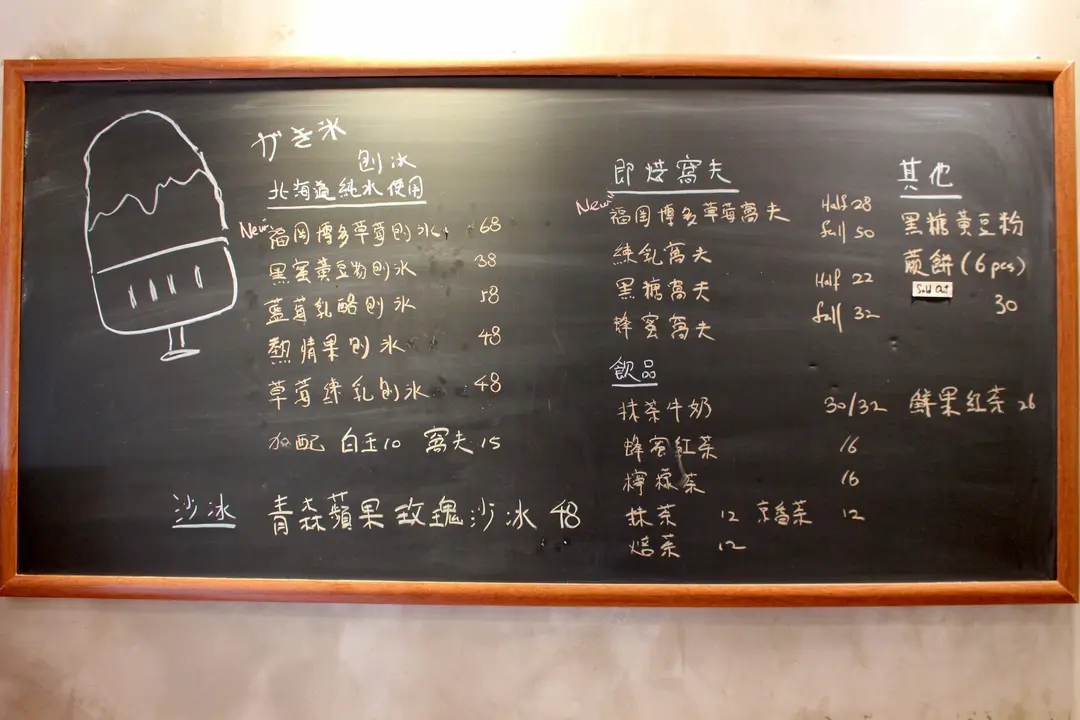 がき氷
刨冰
北海道純水使用
New 福岡博多草莓刨冰 68
黑蜜黃豆粉刨冰 38
藍莓乳酪刨冰 58
熱情果刨冰 48
草莓練乳刨冰 48
加配 白玉10 窩夫15
沙冰 青森蘋果玫瑰沙冰 48
即焙窩夫
New 福岡博多草莓窩夫 Half 28
full 50
練乳窩夫
黑糖窩夫 Half 22
蜂蜜窩夫 full 32
飲品
抹茶牛奶 30/32 鮮果紅茶 26
蜂蜜紅茶 16
檸檬茶 16
抹茶 12 京番茶 12
焙茶 12
其他
黑糖黃豆粉
煎餅(6pcs)
Sold Out 30